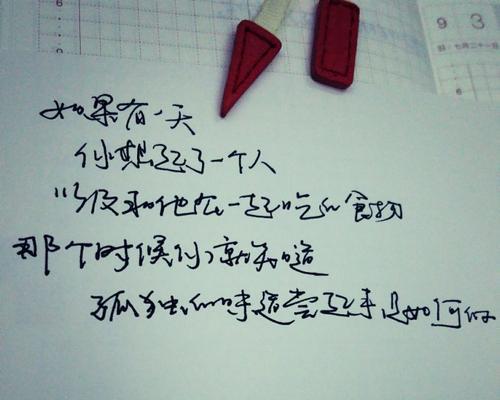 6
9
3
如果有一天
你想起了一个人
以及和他在一起吃的食物
那个时候你就知道
孤独的味道尝起来是如何的